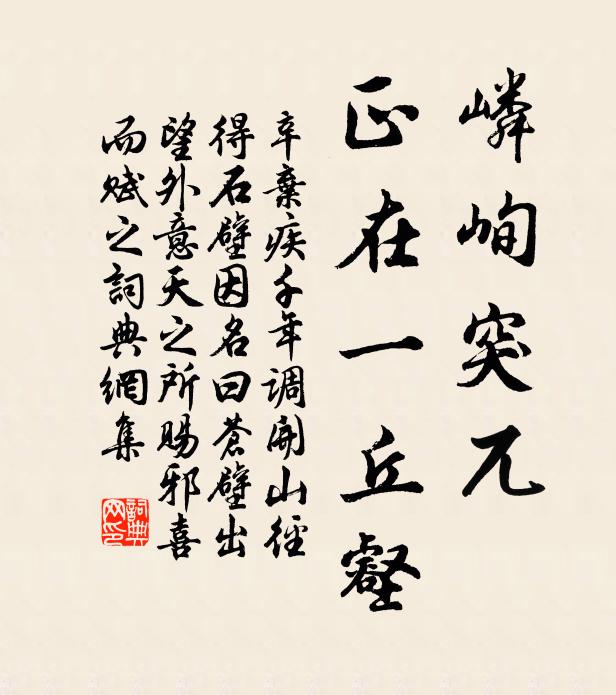 嶙峋突兀
正在一丘壑
辛棄疾千年调開山徑
得石壁因名曰蒼壁出
望外意天之所賜邪喜
而赋之詞典網集
詞典
网印